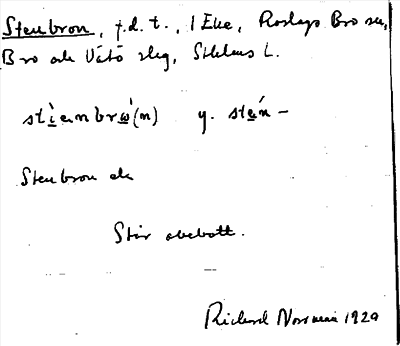 Stenbron, f.d. t., 1 Eke, Roslags Bro sn,
Bro och Vätö slg, Sthlms l.
stìanbrὼ(n) y. stǽn –
Stenbron och
Står obebott.
Rickard Norrman 1929